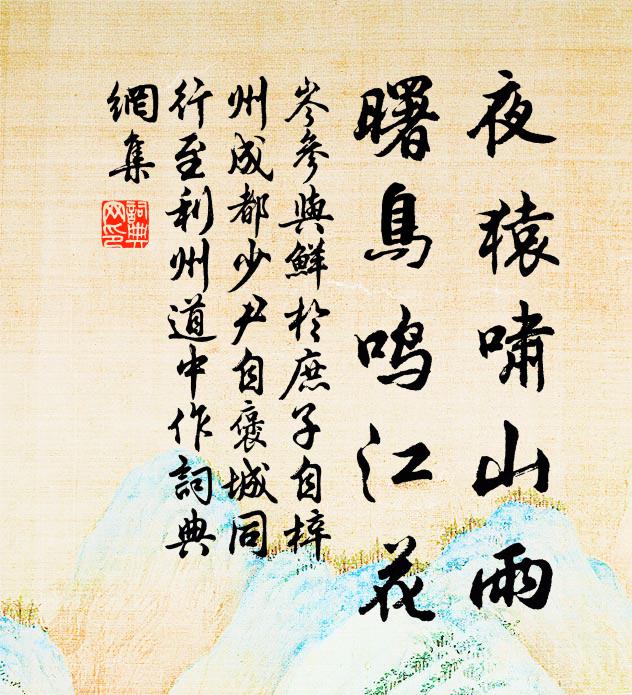 夜猿啸山雨
曙鳥鸣江花
岑參與鮮於庶子自梓
州成都少尹自褒城同
行至利州道中作詞典
網集
詞典
网印